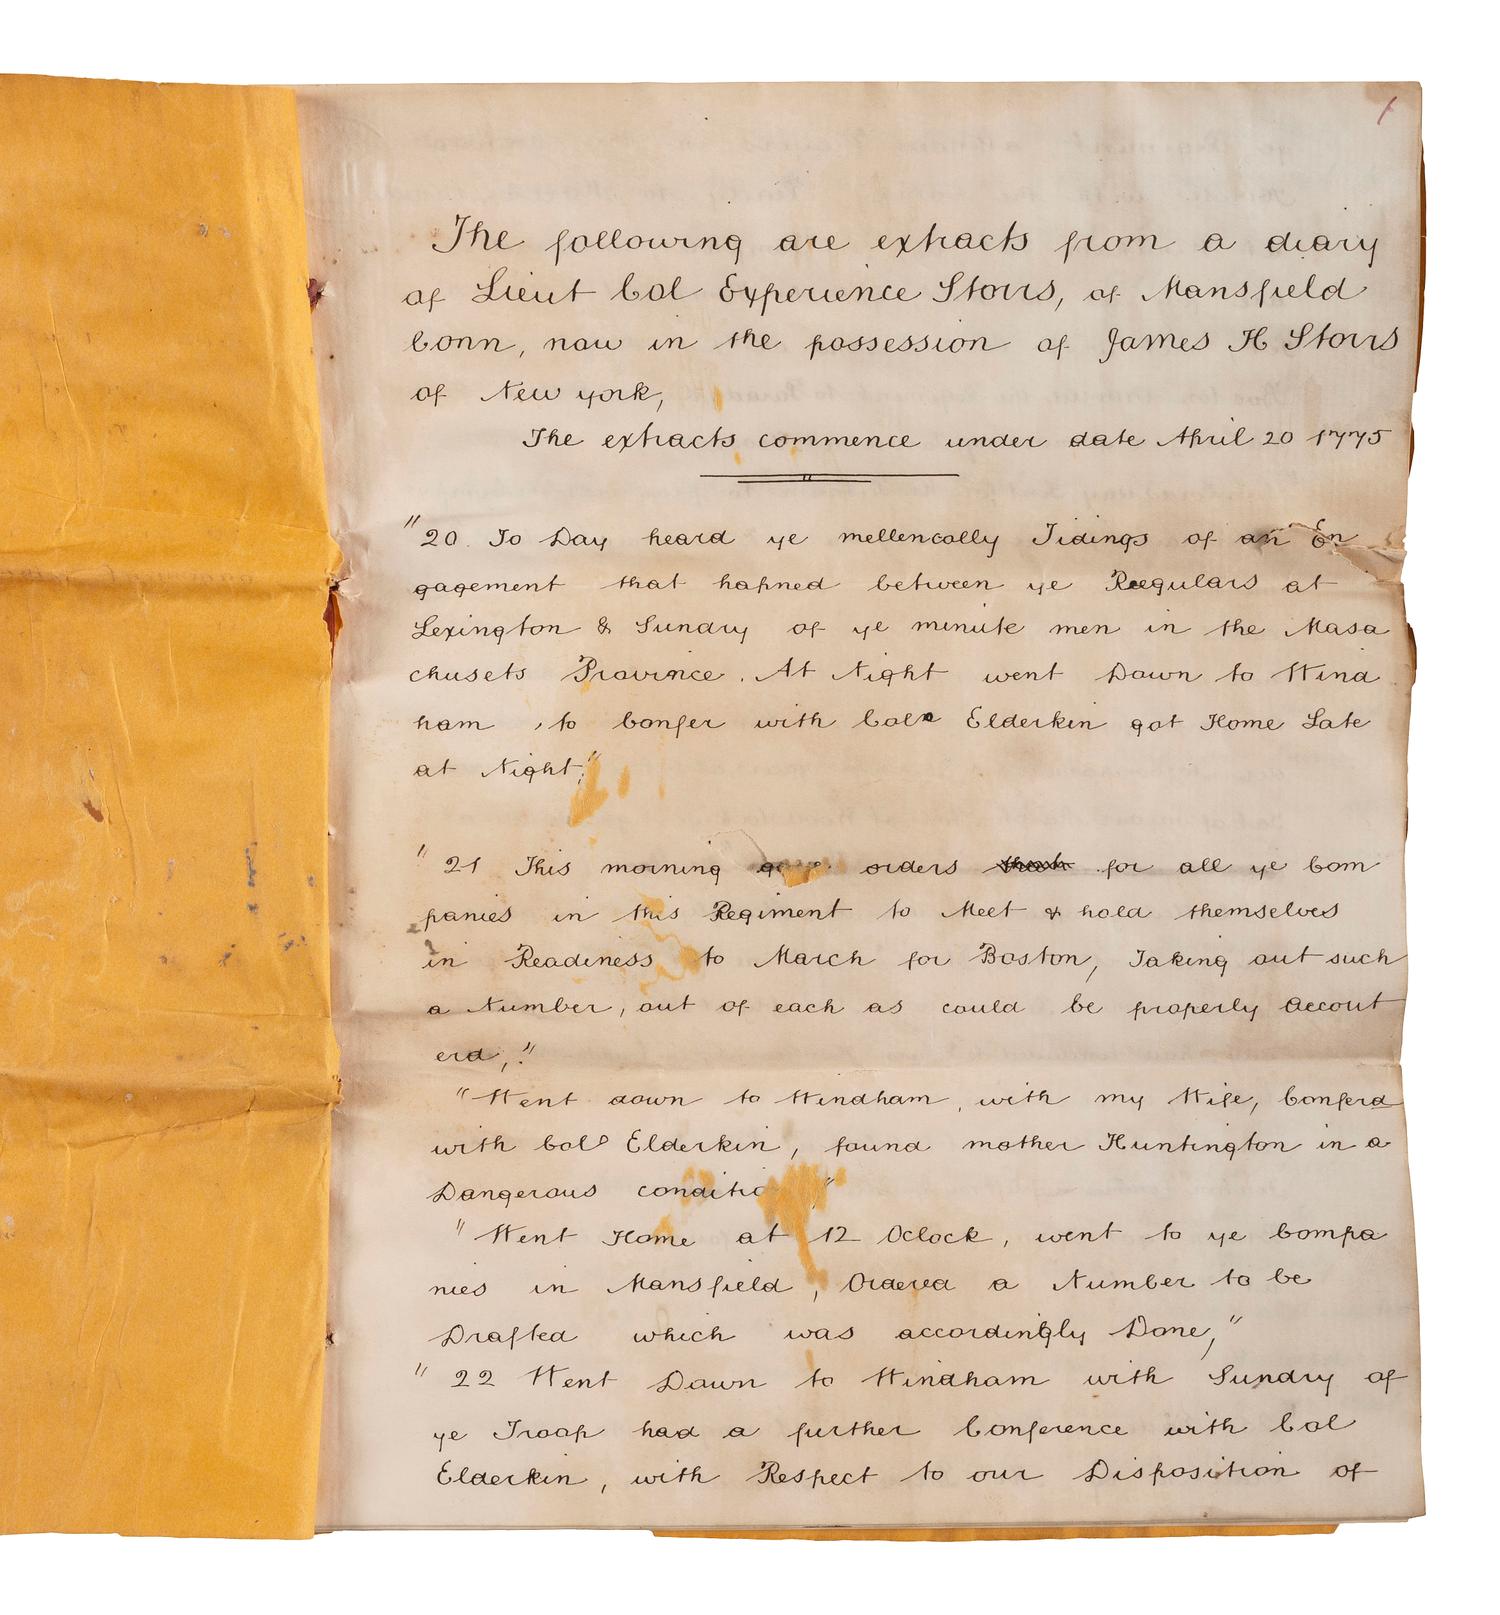 1
The following are extracts from a diary
of Lieut Col Experience Storrs, of Mansfield
Conn, now in the possession of James H Storrs
of New york,
The extracts commence under date April 20 1775
"20. To Day heard ye mellencolly Tidings of an En
gagement that hapned between ye Reegulars at
Lexington & Sundry of ye minute men in the Masa
chusets Province. At Night went Down to Wind
ham , to Confer with Col Elderkin got Home Late
at Night."
" 21 This morning orders for all ye Com
panies in this Regiment to Meet & hold themselves
in Readiness to March for Boston, Taking out such
a Number, out of each as could be properly Accout
erd,."
"Went down to Windham, with my Wife, Conferd
with Col Elderkin, found mother Huntington in a
Dangerous conditio "
"Went Home at 12 Oclock, went to ye Compa
nies in Mansfield, Ordered a Number to be
Drafted which was accordingly Done,"
" 22 Went Down to Windham with Sundry of
ye Troop had a further Conference with Col
Elderkin, with Respect to our Disposition of